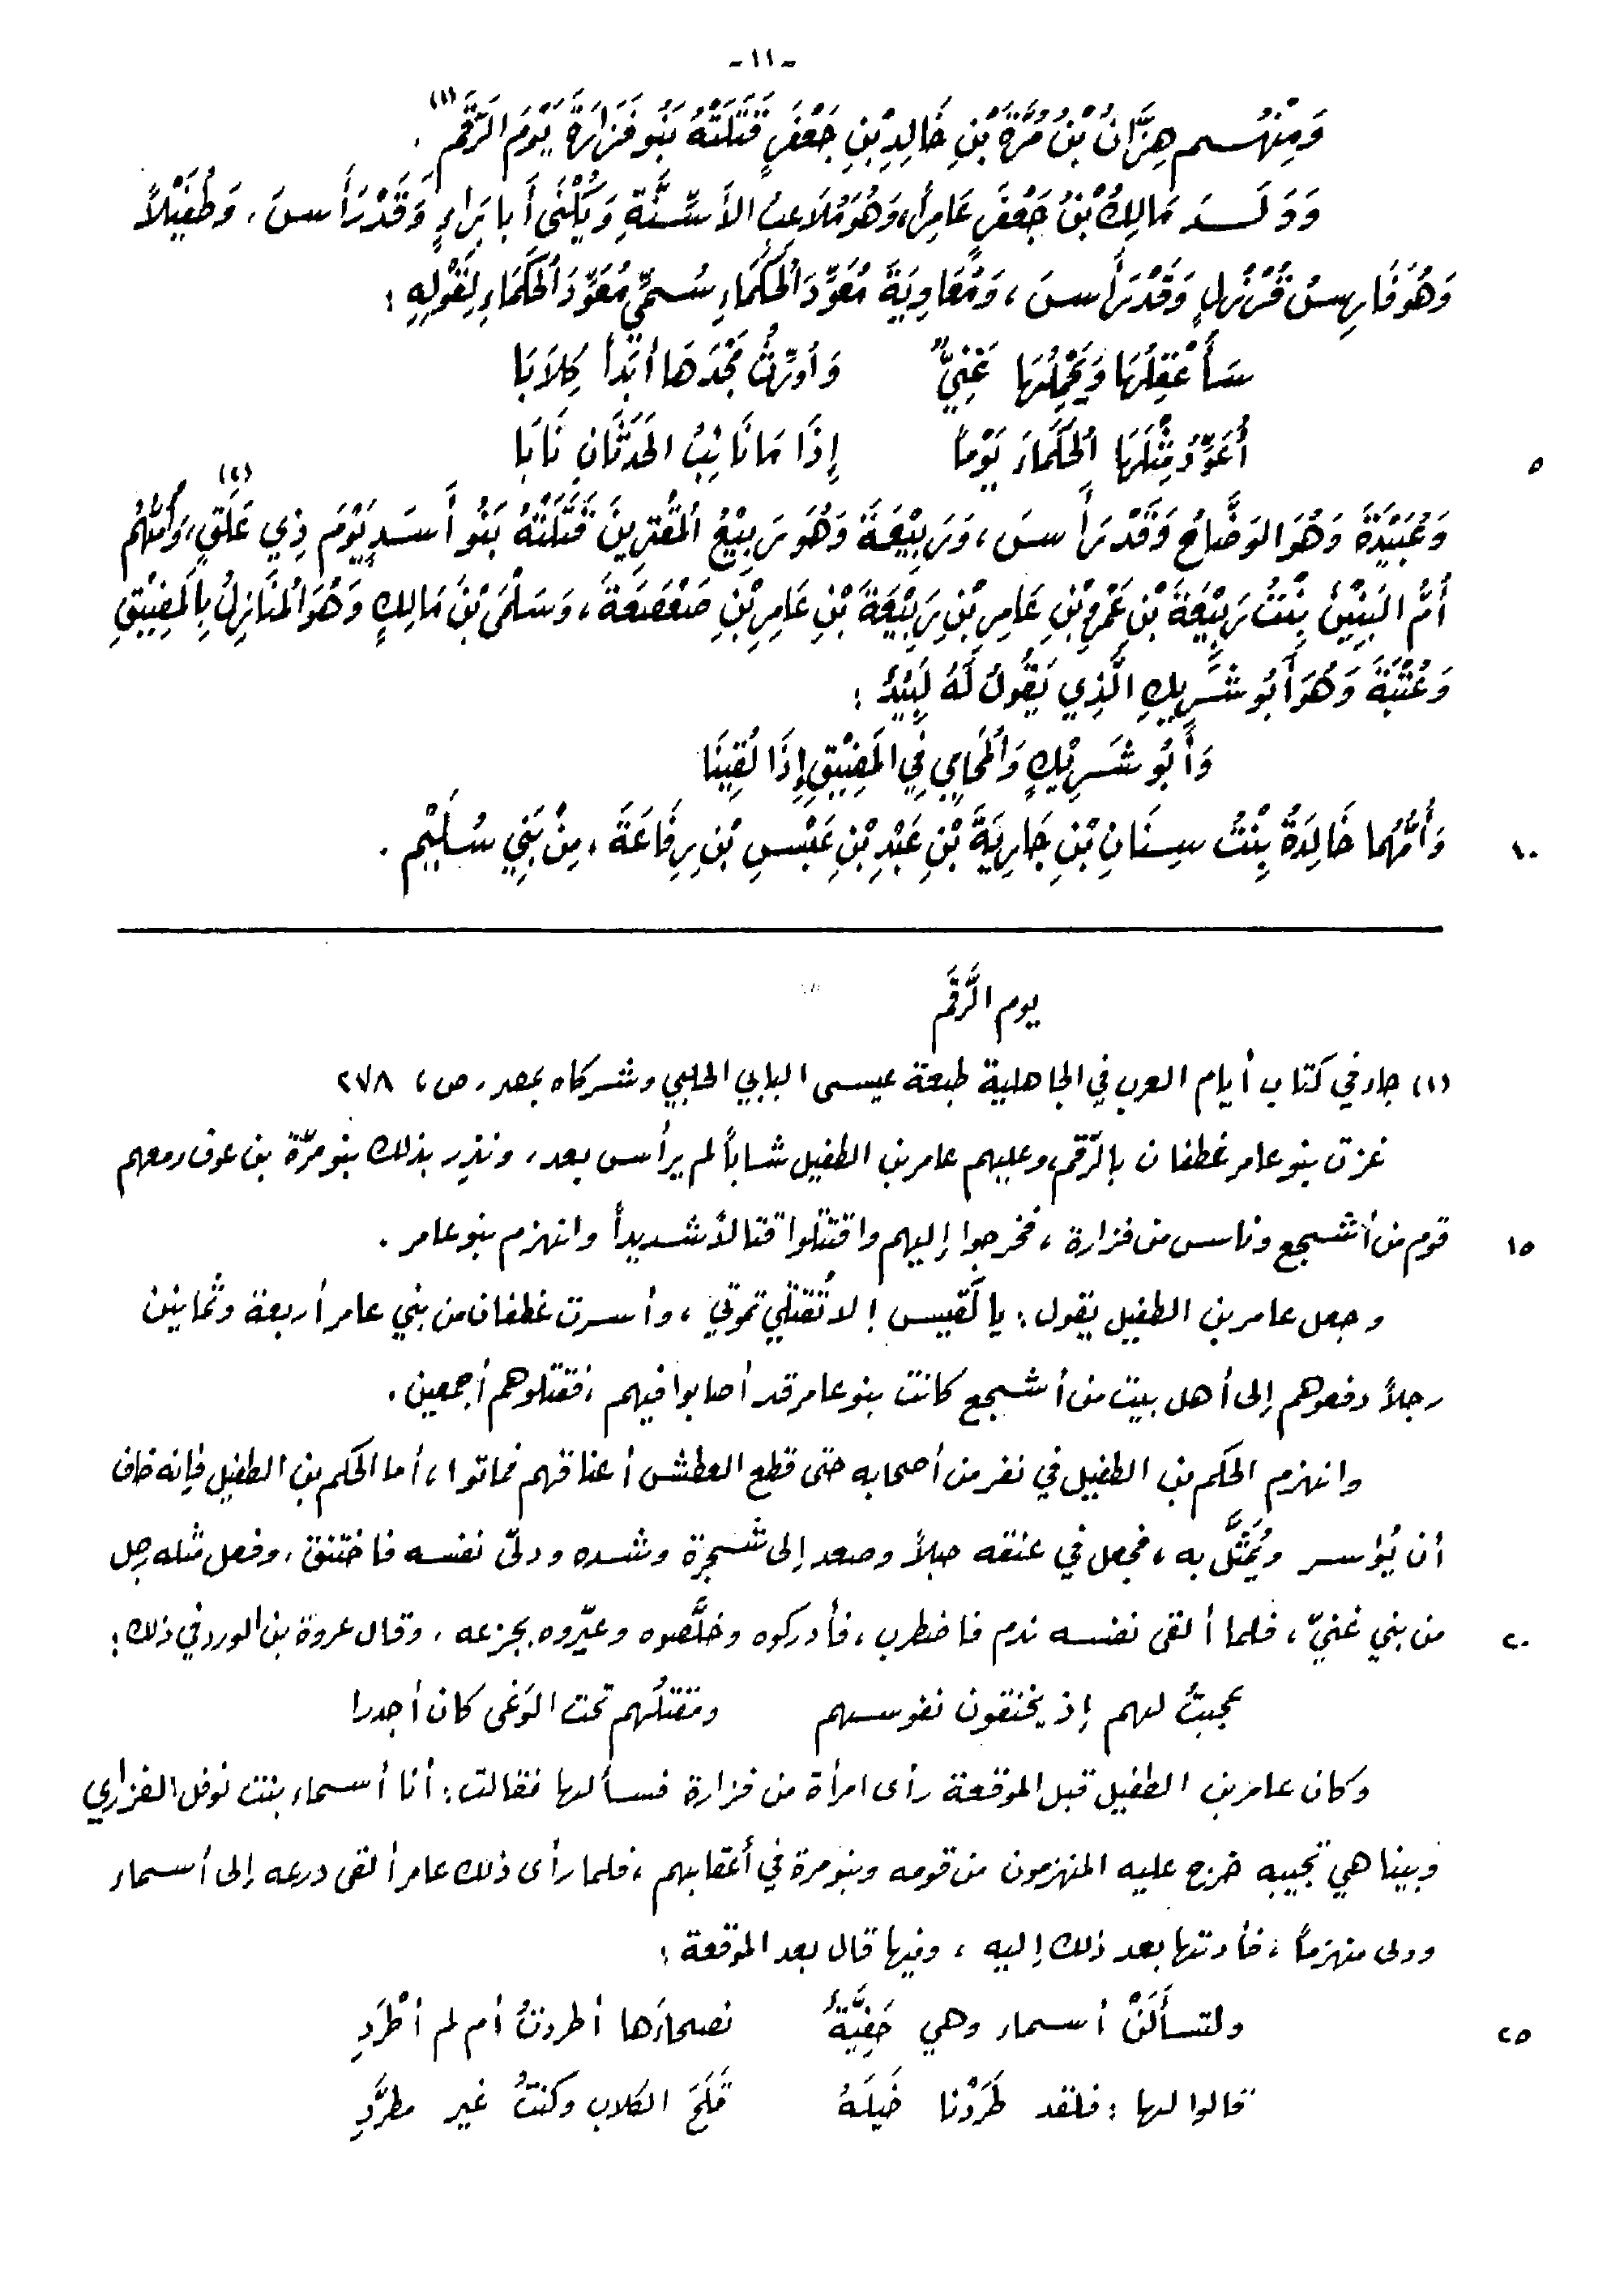 - ١١ -
وَمِنْهُم هِزَّانُ بْنُ مُرَّةَ بْنِ خَالِدِ بْنِ جَعْفَرٍ قَتَلَتْهُ بَنُو فَزَارَةَ يَوْمَ الرَّقَمِ (١) .
وَوَلَدَ مَالِكُ بْنُ جَعْفَرٍ عَامِرًا، وَهُوَ مُلَاعِبُ الأَسِنَّةِ وَيُكْنَى أَبا بَرَاءٍ وَقَدْ رَأَسَ، وَطُفَيْلاً
وَهُوَ فَارِسُ قُرْزُلٍ وَقَدْ رَأَسَ، وَمُعَاوِيَةَ مُعَوِّدَ الْحُكَمَاءِ سُمِّيَ مُعَوِّدَ الْحُكَمَاءِ لِقَوْلِهِ :
سَأَعْقِلُهَا وَيَحْمِلُهَا غَنِيٌّ وَأُورِثُ مَجْدَهَا أَبَداً كِلاَبَا
٥ أُعَوِّدُ مِثْلَهَا الْحُكَمَاءَ يَوْماً إِذَا مَا نَائِبُ الحَدَثَانِ نَابَا
وَعُبَيْدَةَ وَهُوَ الوَضَّاحُ وَقَدْ رَأَسَ، وَرَبِيْعَةَ وَهُوَ رَبِيْعُ الْمُقْتِرِينَ قَتَلَتْهُ بَنُو أَسَدٍ يَوْمَ ذِي عَلَقٍ (٢)، وَأُمُّهُم
أُمُّ البَنِيْنَ بِنْتُ رَبِيْعَةَ بْنِ عَمْرِو بْنِ عَامِرِ بْنِ رَبِيْعَةَ بْنِ عَامِرِ بْنِ صَعْصَعَةَ، وَسَلْمَى بْنَ مَالِكٍ وَهُوَ الْمُنَازِلُ بِالْمَضِيْقِ
وَعُتْبَةَ وَهُوَ أَبُو شَرِيكٍ الَّذِي يَقُولُ لَهُ لَبِيْدٌ :
وَأَبُو شَرِيْكٍ وَالْمُحَامِي فِي المَضِيْقِ إِذَا لَقِيْنَا
١٠ وَأُمُّهُما خَالِدَةُ بِنْتُ سِنَانِ بْنِ جَارِيَةَ بْنِ عَبْدِ بْنِ عَبْسِ بْنِ رِفَاعَةَ، مِنْ بَنِي سُلَيْمٍ .
يوم الرَّقَم
(١) جاء في كتاب أيام العرب في الجاهلية طبعة عيسى البابي الحلبي وشركاه بمصر، ص، ٢٧٨
غزت بنو عامر غطفان بالرّقم، وعليهم عامر بن الطفيل شاباً لم يرأس بعد، ونذر بذلك بنو مرّة بن عوف ومعهم
١٥ قوم من أشجع وناس من فزارة، فخرجوا إليهم واقتتلوا قتالاً شديداً وانهزم بنو عامر .
وجعل عامر بن الطفيل يقول: يا لَقيس! لا تُقتلي تموتي، وأسرت غطفان من بني عامر أربعة وثمانين
رجلاً دفعوهم إلى أهل بيت من أشجع كانت بنو عامر قد أصابوا فيهم، فقتلوهم أجمعين.
وانهزم الحكم بن الطفيل في نفر من أصحابه حتى قطع العطش أعناقهم فماتوا، أما الحكم بن الطفيل فإنه خاف
أن يُؤسر ويُمَثَّل به، فجعل في عنقه حبلاً وصعد إلى شجرة وشده ودلىّ نفسه فاختنق، وفعل مثله رجل
٢٠ من بني غنيّ، فلما ألقى نفسه ندم فاضطرب، فأدركوه وخلَّصوه وعيّروه بجزعه، وقال عروة بن الورد في ذلك :
عجبتُ لهم إذ يخنقون نفوسهم ومقتلُهم تحت الوَغى كان أجدرا
وكان عامر بن الطفيل قبل الموقعة رأى امرأة من فزارة فسألها فقالت : أنا أسماء بنت نوفل الفزاري
وبينا هي تجيبه خرج عليه المنهزمون من قومه وبنو مرة في أعقابهم، فلما رأى ذلك عامر ألقى درعه إلى أسماء
وولى منهزماً، فأدتها بعد ذلك إليه، وفيها قال بعد الموقعة :
٢٥ ولتسأَلَنْ أسماء وهي حَفِيَّةٌ نصحاءَها أطردتُ أم لم أطْرَدِ
قالوا لها : فلقد طَرَدْنا خَيلَهُ قَلَحَ الكلاب وكنتُ غير مطرَّدِ